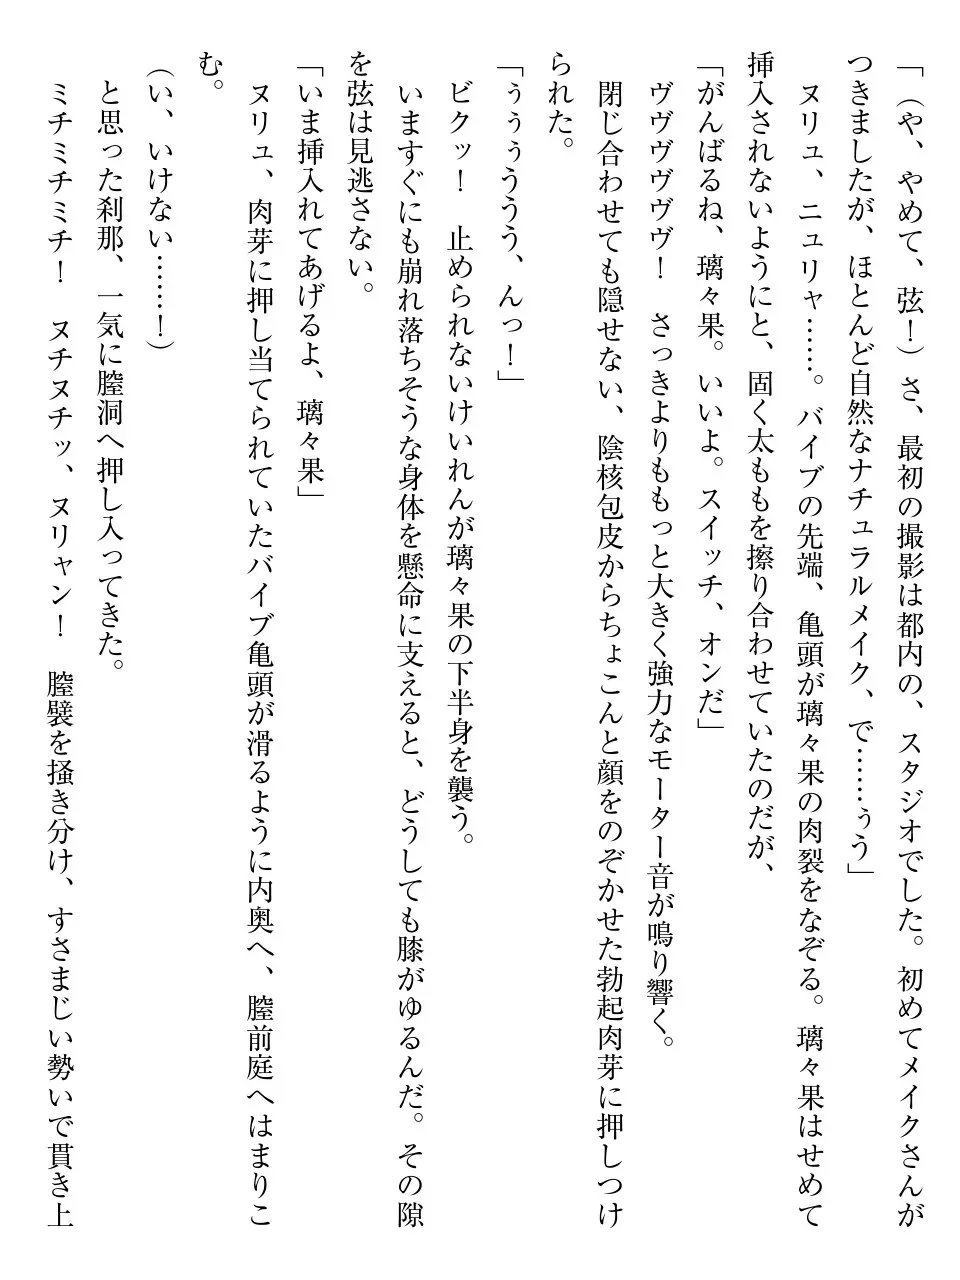 「（や、やめて、弦！）さ、最初の撮影は都内の、スタジオでした。初めてメイクさんが
つきましたが、ほとんど自然なナチュラルメイク、で……ぅう」
ヌリュ、ニュリャ……。バイブの先端、亀頭が璃々果の肉裂をなぞる。璃々果はせめて
挿入されないようにと、固く太ももを擦り合わせていたのだが、
「がんばるね、璃々果。いいよ。スイッチ、オンだ」
ヴヴヴヴヴヴ！　さっきよりももっと大きく強力なモーター音が鳴り響く。
閉じ合わせても隠せない、陰核包皮からちょこんと顔をのぞかせた勃起肉芽に押しつけ
られた。
「ぅぅぅううう、んっ！」
ビクッ！　止められないけいれんが璃々果の下半身を襲う。
いますぐにも崩れ落ちそうな身体を懸命に支えると、どうしても膝がゆるんだ。その隙
を弦は見逃さない。
「いま挿入れてあげるよ、璃々果」
ヌリュ、肉芽に押し当てられていたバイブ亀頭が滑るように内奥へ、膣前庭へはまりこ
む。
（い、いけない……！）
と思った刹那、一気に膣洞へ押し入ってきた。
ミチミチミチ！　ヌチヌチッ、ヌリャン！　膣襞を掻き分け、すさまじい勢いで貫き上